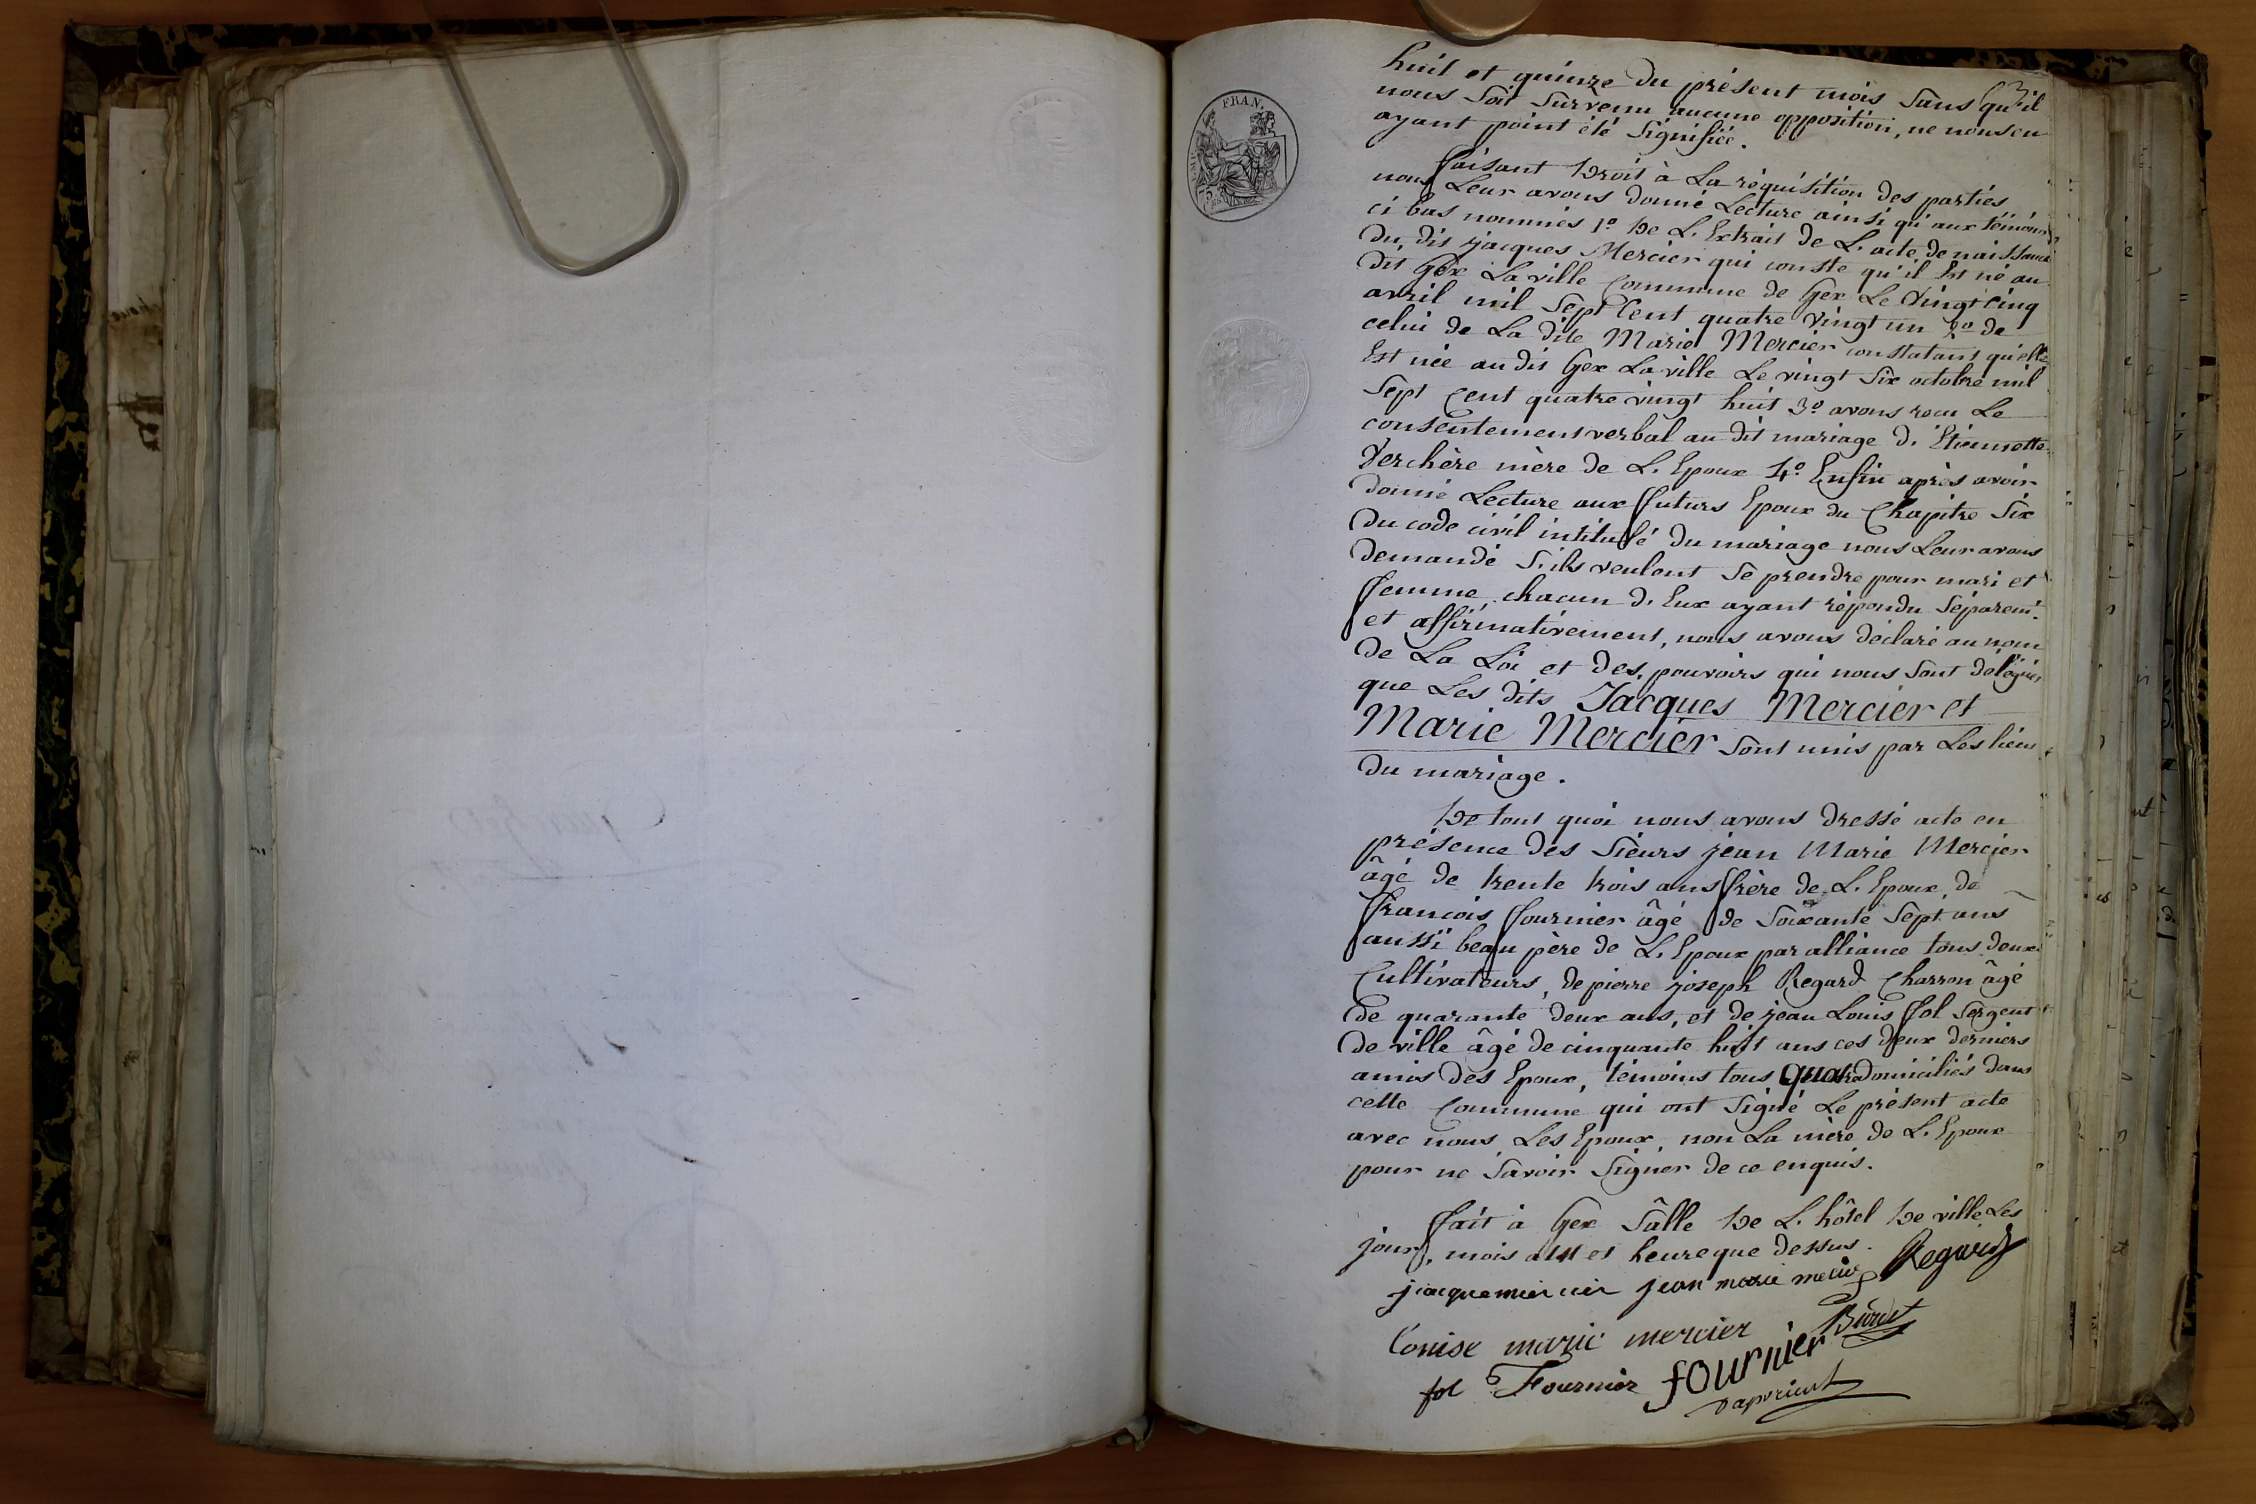 FRAN.
huit et quinze du présent mois sans qu'il
nous soit survenu aucune opposition, ne nous en
ayant point été signifiée.
faisant Droit à La réquisition des parties
nous Leur avons donné Lecture ainsi qu'aux témoins
ci bas nommés 1.º De L. Extrait de L. acte de naissance
du dit jacques Mercier qui conste qu'il Est né au
dit Gex La ville Commune de Gex Le vingt cinq
avril mil Sept Cent quatre vingt un 2º de
celui de La dite Marie Mercier constatant qu'elle
Est née au dit Gex La ville Le vingt Six octobre mil
Sept Cent quatre vingt huit 3º avons reçu Le
consentement verbal au dit mariage d. Etiennette
Verchère mère de L. Epoux 4.º Enfin après avoir
donné Lecture aux futurs Epoux du Chapitre Six
du code civil intitulé du mariage nous Leur avons
demandé S'ils veulent Se prendre pour mari et
femme, chacun d. Eux ayant répondu Séparemt.
et affirmativement, nous avons déclaré au nom
de La Loi et des pouvoirs qui nous Sont délégués
que Les dits Jacques Mercier et
Marie Mercier Sont unis par Les liens
du mariage.
De tout quoi nous avons dressé acte en
présence des Sieurs jean Marie Mercier
âgé de trente trois ans frère de L. Epoux, de
françois fournier âgé de Soixante Sept ans
aussi beau père de L. Epoux par alliance tous deux
Cultivateurs, de pierre joseph Regard Charron âgé
de quarante deux ans, et de jean Louis fol Sergent
de ville âgé de cinquante huit ans ces deux derniers
amis des Epoux, témoins tous quatre domiciliés dans
cette Commune qui ont Signé Le présent acte
avec nous Les Epoux, non La mère de L. Epoux
pour ne Savoir Signer de ce enquis.
fait à Gex Sâlle De L. hôtel De ville Les
jour, mois an et heure que dessus.
jiacque miercier jean marie mecier Regard
Louise marie mercier
fol Fournier fournier